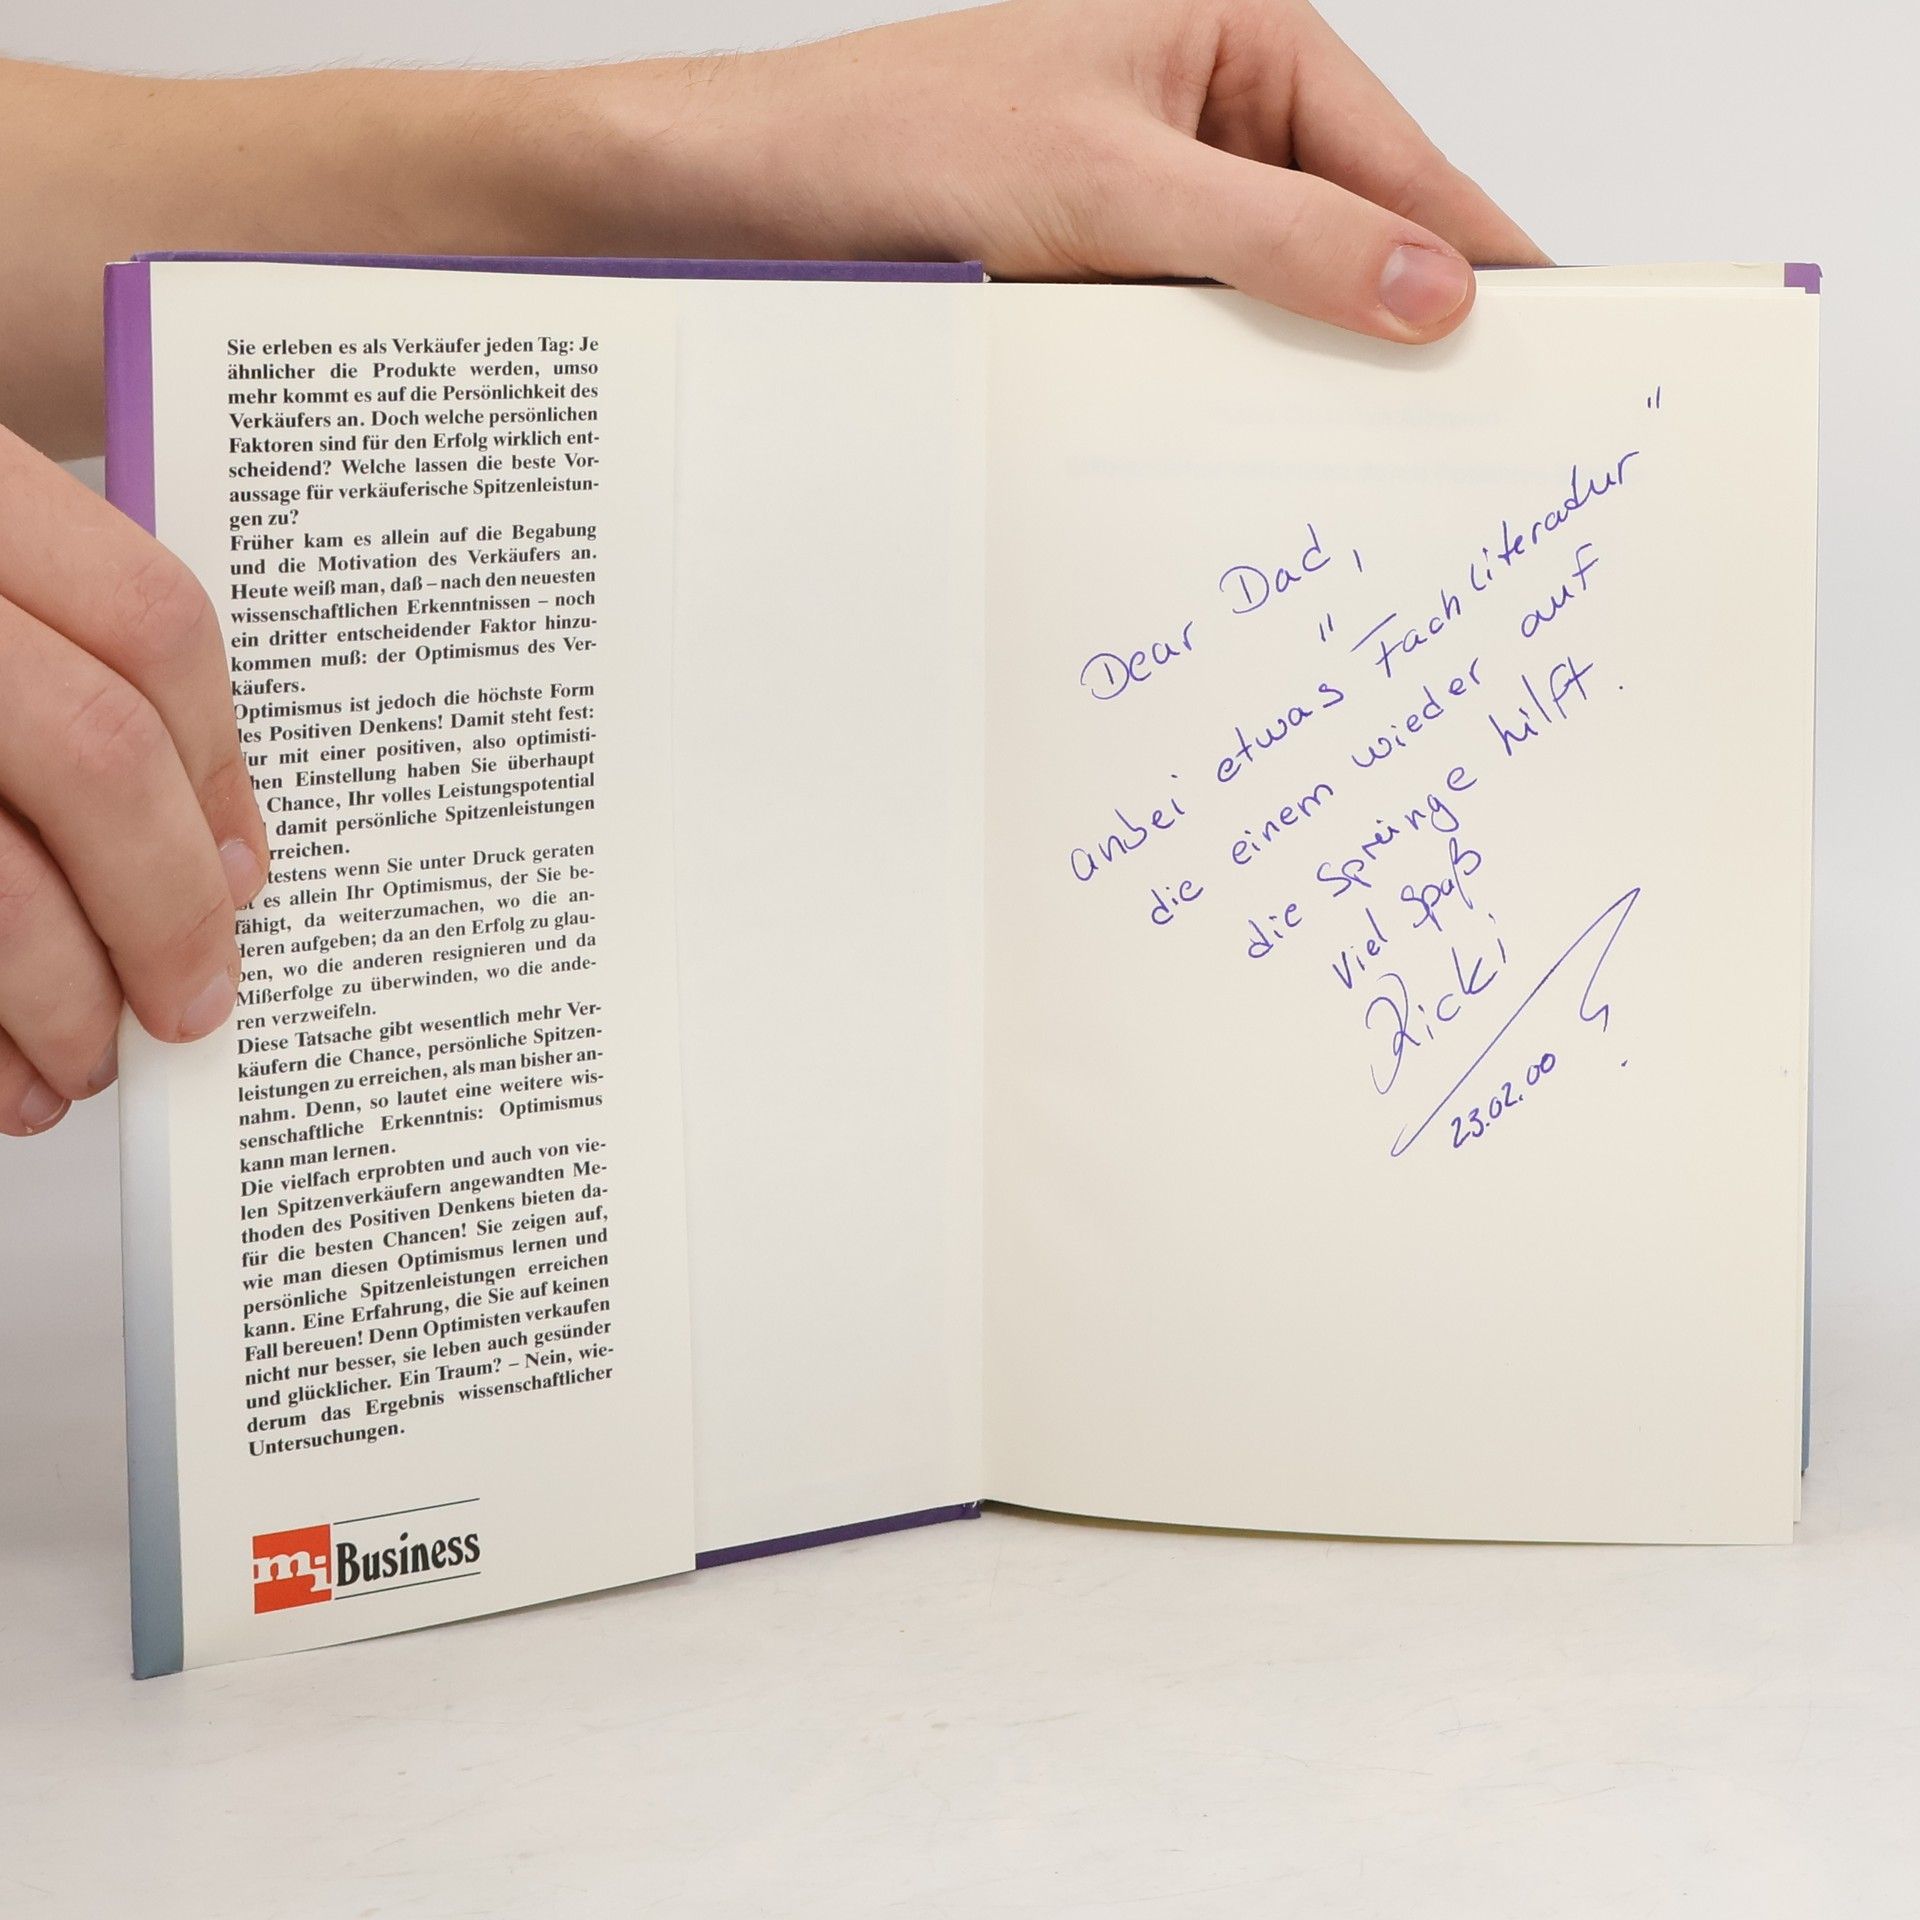 Sie erleben es als Verkäufer jeden Tag: Je
ähnlicher die Produkte werden, umso
mehr kommt es auf die Persönlichkeit des
Verkäufers an. Doch welche persönlichen
Faktoren sind für den Erfolg wirklich ent-
scheidend? Welche lassen die beste Vor-
aussage für verkäuferische Spitzenleistun-
gen zu?
Früher kam es allein auf die Begabung
und die Motivation des Verkäufers an.
Heute weiß man, daß – nach den neuesten
wissenschaftlichen Erkenntnissen – noch
ein dritter entscheidender Faktor hinzu-
kommen muß: der Optimismus des Ver-
käufers.
Optimismus ist jedoch die höchste Form
les Positiven Denkens! Damit steht fest:
ur mit einer positiven, also optimisti-
hen Einstellung haben Sie überhaupt
Chance, Ihr volles Leistungspotential
damit persönliche Spitzenleistungen
rreichen.
testens wenn Sie unter Druck geraten
es allein Ihr Optimismus, der Sie be-
fähigt, da weiterzumachen, wo die an-
deren aufgeben; da an den Erfolg zu glau-
ben, wo die anderen resignieren und da
Mißerfolge zu überwinden, wo die ande-
ren verzweifeln.
Diese Tatsache gibt wesentlich mehr Ver-
käufern die Chance, persönliche Spitzen-
leistungen zu erreichen, als man bisher an-
nahm. Denn, so lautet eine weitere wis-
senschaftliche Erkenntnis: Optimismus
kann man lernen.
Die vielfach erprobten und auch von vie-
len Spitzenverkäufern angewandten Me-
thoden des Positiven Denkens bieten da-
für die besten Chancen! Sie zeigen auf,
wie man diesen Optimismus lernen und
persönliche Spitzenleistungen erreichen
kann. Eine Erfahrung, die Sie auf keinen
Fall bereuen! Denn Optimisten verkaufen
nicht nur besser, sie leben auch gesünder
und glücklicher. Ein Traum? – Nein, wie-
derum das Ergebnis wissenschaftlicher
Untersuchungen.
mi Business
Dear Dad,
anbei etwas "Fachliteratur"
die einem wieder auf
die Sprünge hilft.
Viel Spaß
Ricki
23.02.00